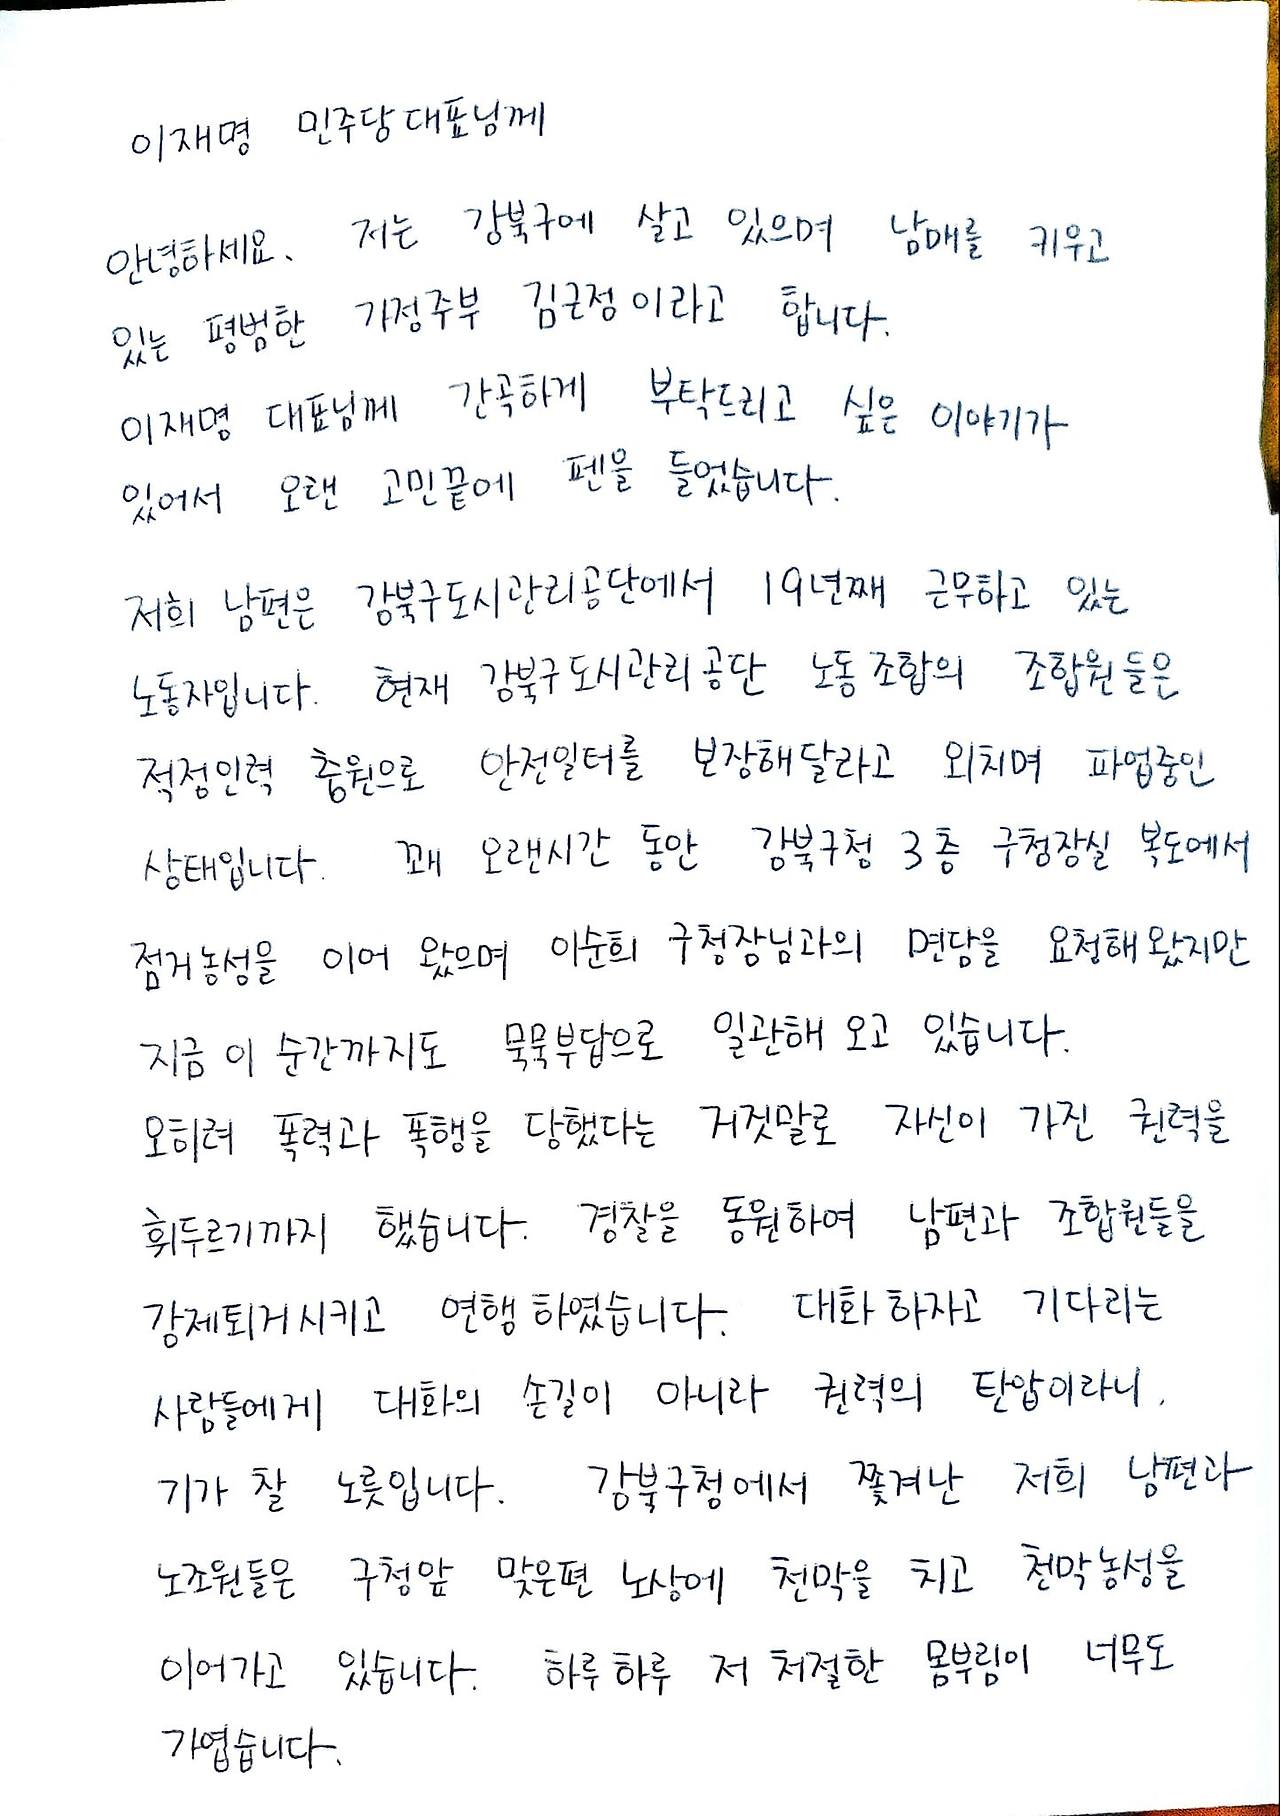 이재명 민주당대표님께
안녕하세요. 저는 강북구에 살고 있으며 남매를 키우고
있는 평범한 가정주부 김근정이라고 합니다.
이재명 대표님께 간곡하게 부탁드리고 싶은 이야기가
있어서 오랜 고민끝에 펜을 들었습니다.
저희 남편은 강북구도시관리공단에서 19년째 근무하고 있는
노동자입니다. 현재 강북구도시관리공단 노동조합의 조합원들은
적정인력 충원으로 안전일터를 보장해달라고 외치며 파업중인
상태입니다. 꽤 오랜시간 동안 강북구청 3층 구청장실 복도에서
점거농성을 이어 왔으며 이순희 구청장님과의 면담을 요청해왔지만
지금 이 순간까지도 묵묵부답으로 일관해 오고 있습니다.
오히려 폭력과 폭행을 당했다는 거짓말로 자신이 가진 권력을
휘두르기까지 했습니다. 경찰을 동원하여 남편과 조합원들을
강제퇴거시키고 연행하였습니다. 대화하자고 기다리는
사람들에게 대화의 손길이 아니라 권력의 탄압이라니,
기가 찰 노릇입니다. 강북구청에서 쫓겨난 저희 남편과
노조원들은 구청앞 맞은편 노상에 천막을 치고 천막농성을
이어가고 있습니다. 하루하루 저 처절한 몸부림이 너무도
가엽습니다.